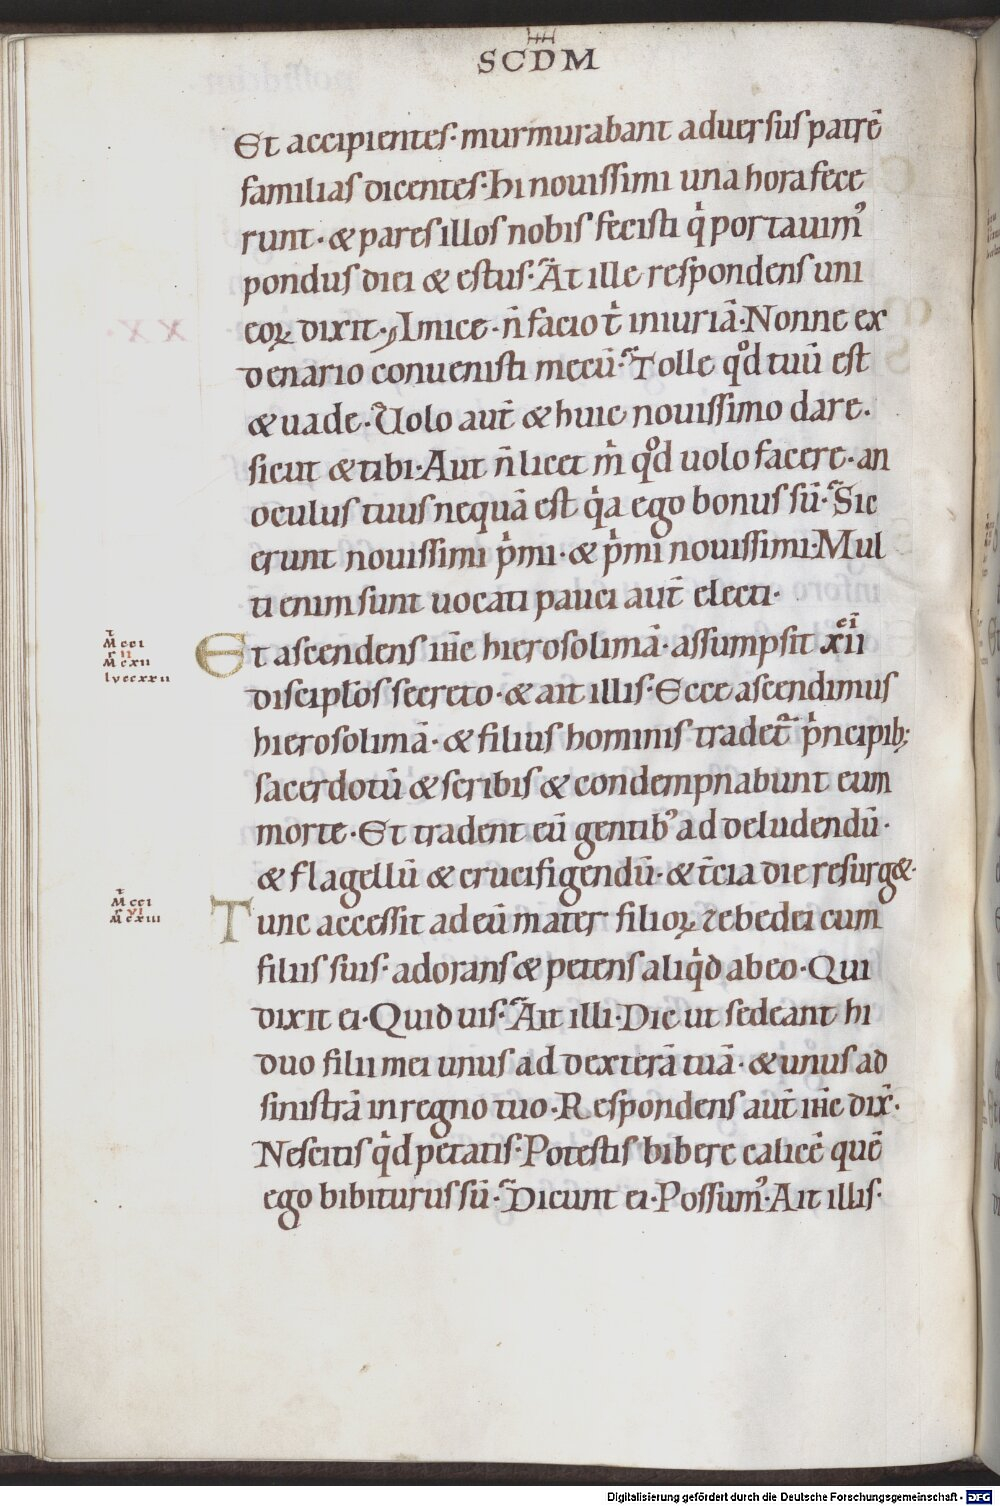 SCDM
Et accipientes· murmurabant aduersus patrē
familias dicentes· Hi nouissimi una hora fece
runt· & pares illos nobis fecisti q̇ portauim᾽
pondus diei & estus· At ille respondens uni
eoꝝ dixit· Amice· n̄ facio t̄ iniuriā· Nonne ex
denario conuenisti mecū· Tolle qd̊ tuū est
& uade· Uolo aut̄ & huic nouissimo dare·
sicut & tibi· Aut n̄ licet m̄ qd̊ uolo facere· an
oculus tuus nequā est q̇a ego bonus sū· Sic
erunt nouissimi ṗmi· & ṗmi nouissimi· Mul
ti enim sunt uocati pauci aut̄ electi·
Et ascendens ih̄c hierosolimā· assumpsit xii
discipl̄os secreto· & ait illis· Ecce ascendimus
hierosolimā· & filius hominis tradet̄ ṗncipib;
sacerdotū & scribis & condempnabunt eum
morte· Et tradent eū gentib᾽ ad deludendū·
& flagellū & crucifigendū· & t̄cia die resurg&·
Tunc accessit ad eū mater filioꝝ zebedei cum
filiis suis· adorans & petens aliq̇d ab eo· Qui
dixit ei· Quid uis· Ait illi· Dic ut sedeant hi
duo filii mei unus ad dexterā tuā· & unus ad
sinistrā in regno tuo· Respondens aut̄ ih̄c dix̄·
Nescitis q̇d petatis· Potestis bibere calicē quē
ego bibiturus sū· Dicunt ei· Possum᾽· Ait illis·
Digitalisierung gefördert durch die Deutsche Forschungsgemeinschaft - DFG